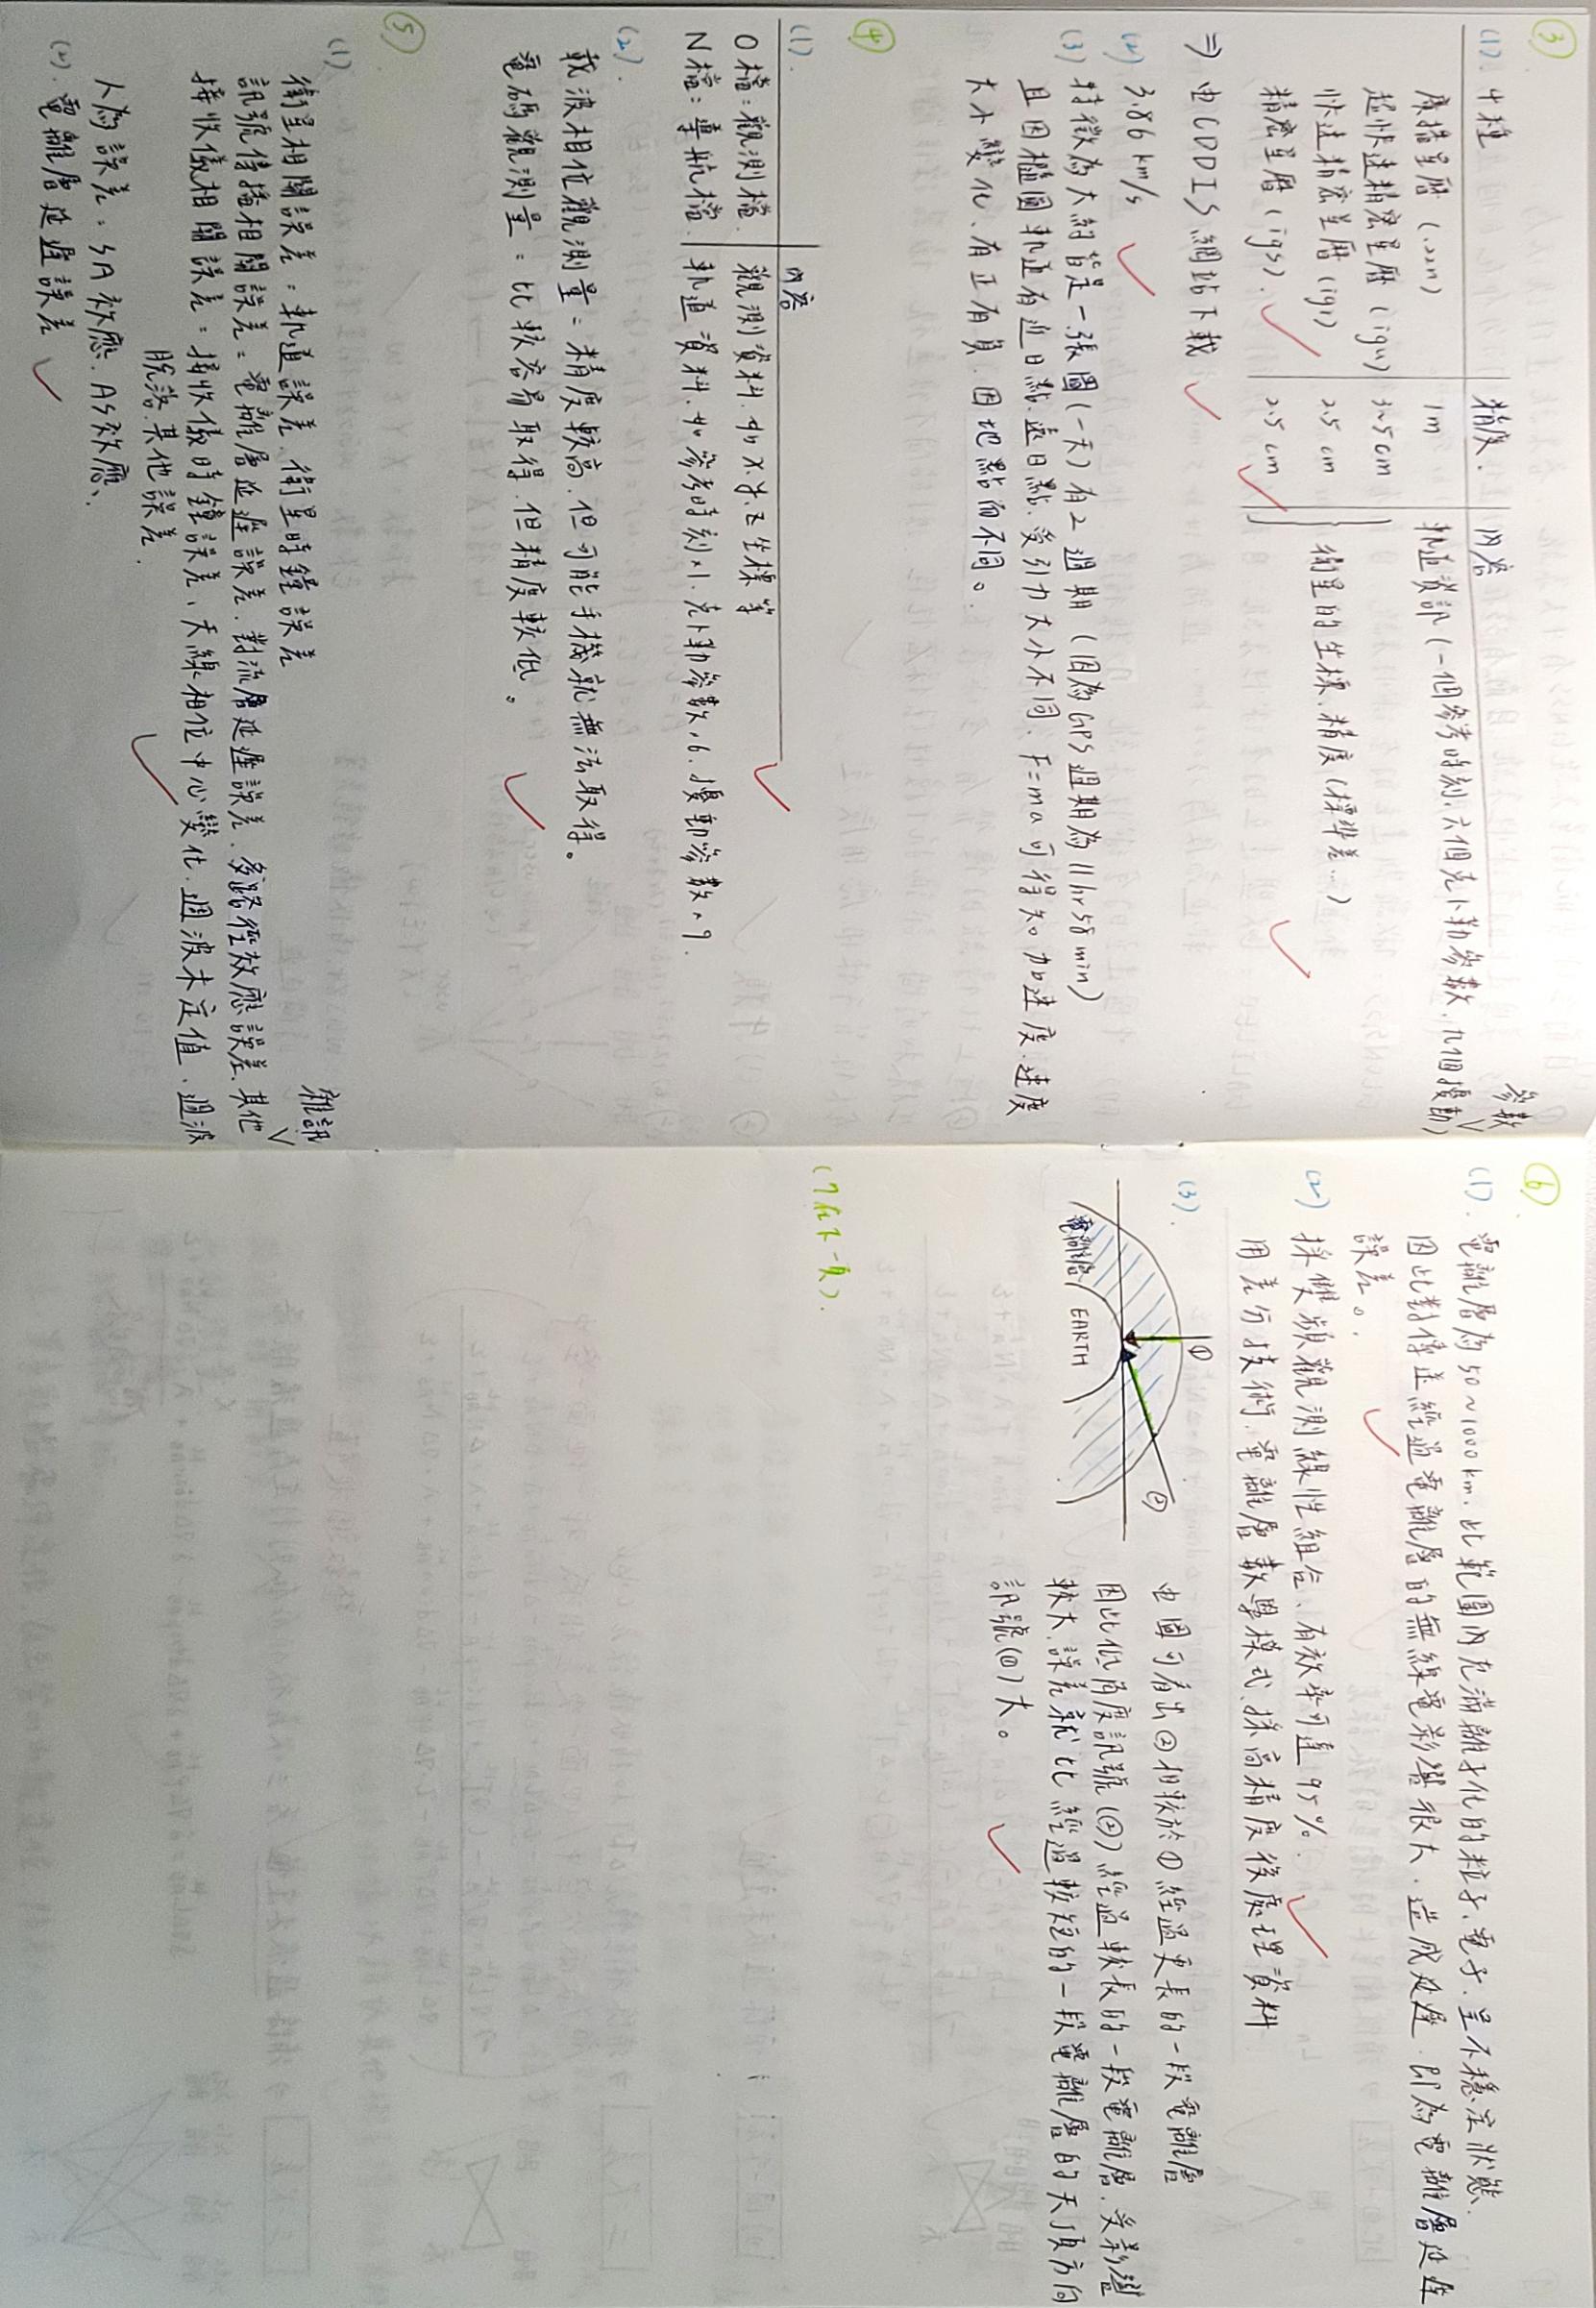 ③
(1). 4種 精度. 內容
參數
廣播星曆 (.22n) 1m 軌道資訊 (一個參考時刻, 六個克卜勒參數, 九個擾動)
超快速精密星曆 (igu) 3~5cm
快速精密星曆 (igr) 2.5 cm 衛星的坐標、精度(標準差…)
精密星曆 (igs). 2.5 cm
⇒ 由CDDIS網站下載
(2) 3.86 km/s
(3) 特徵為大約皆是一張圖(一天)有2週期 (因為GPS週期為11hr58min)
且因橢圓軌道有近日點.遠日點.受引力大小不同. F=ma可得知加速度.速度
大小變化、有正有負.因地點而不同。
④
(1). 內容
O檔:觀測檔. 觀測資料.如x.y.z坐標等
N檔:導航檔. 軌道資料.如參考時刻×1.克卜勒參數×6.擾動參數×9.
(2).
載波相位觀測量:精度較高.但可能手機就無法取得。
電碼觀測量:比較容易取得.但精度較低。
⑤
(1)
衛星相關誤差:軌道誤差.衛星時鐘誤差
雜訊
訊號傳播相關誤差:電離層延遲誤差.對流層延遲誤差.多路徑效應誤差.其他
接收儀相關誤差:接收儀時鐘誤差、天線相位中心變化.週波未定值.週波
脫落.其他誤差.
人為誤差:SA效應.AS效應.
(2).電離層延遲誤差
⑥
(1). 電離層為50~1000km.此範圍內充滿離子化的粒子.電子.呈不穩定狀態.
因此對傳送經過電離層的無線電影響很大.造成延遲.即為電離層延遲
誤差。
(2) 採雙頻觀測線性組合、有效率可達95%.
用差分技術.電離層數學模式.採高精度後處理資料
(3).
①
②
電離層
EARTH
由圖可看出②相較於①經過更長的一段電離層
因此低角度訊號(②)經過較長的一段電離層.受影響
較大.誤差就比經過較短的一段電離層的天頂方向
訊號(①)大。
(7在下一頁).